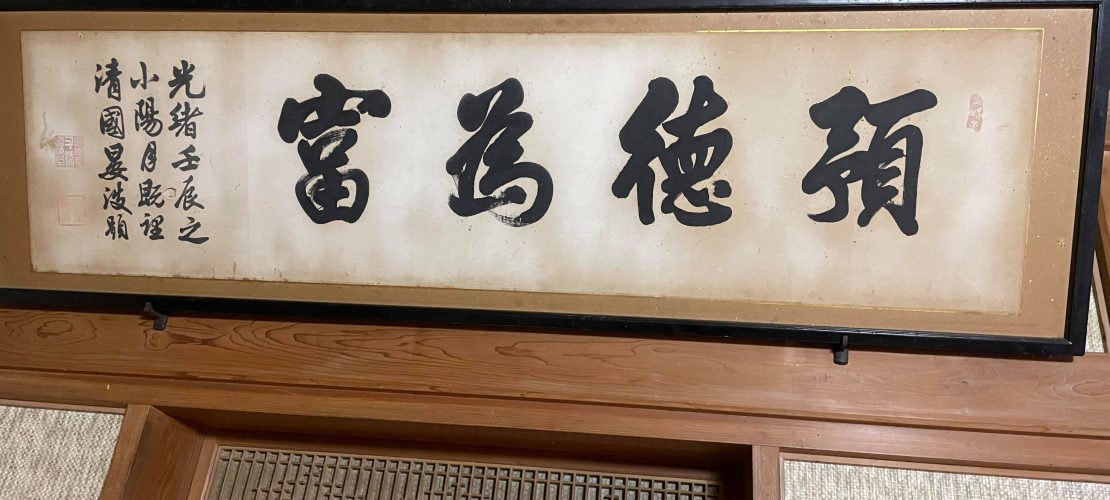 預德為富
光緒壬辰之
小陽月既裡
清國晏波題